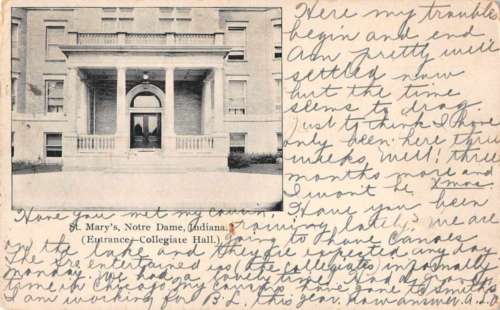 Here my trouble
begin and end
Am pretty well
settled now
but the time
seems to drag.
Just to think I have
only been here three
weeks, well! three
months more and
I won't be Xmas
Have you been
Have you met my cousin,
training lately? We are
St. Mary's, Notre Dame, Indiana.
(Entrance—Collegiate Hall.)
going to have Canoes
on the lake and they are expected any day
The Srs entertained us the collegiates informally
Monday. We had a lovely time. Had a
time in Chicago, my cousins have gone to Smiths
I am working for B.L. this year. Now answer A.S.O